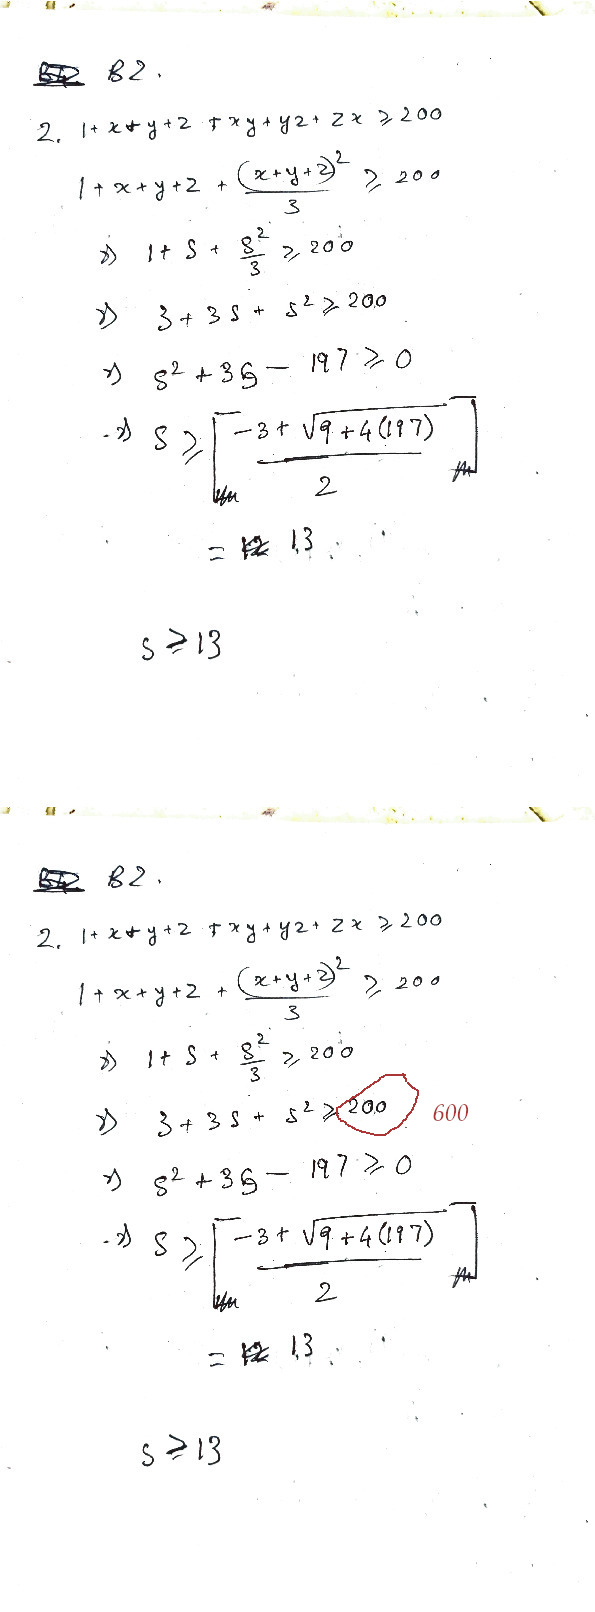 B2.
2. 1+x+y+z+xy+yz+zx ≥ 200
1+x+y+z + (x+y+z)²/3 ≥ 200
⇒ 1+S+S²/3 ≥ 200
⇒ 3+3S+S² ≥ 200
⇒ S²+3S−197 ≥ 0
⇒ S ≥ ⌈(−3+√9+4(197))/2⌉
= 13
S ≥ 13
B2.
2. 1+x+y+z+xy+yz+zx ≥ 200
1+x+y+z + (x+y+z)²/3 ≥ 200
⇒ 1+S+S²/3 ≥ 200
⇒ 3+3S+S² ≥ 200 600
⇒ S²+3S−197 ≥ 0
⇒ S ≥ ⌈(−3+√9+4(197))/2⌉
= 13
S ≥ 13